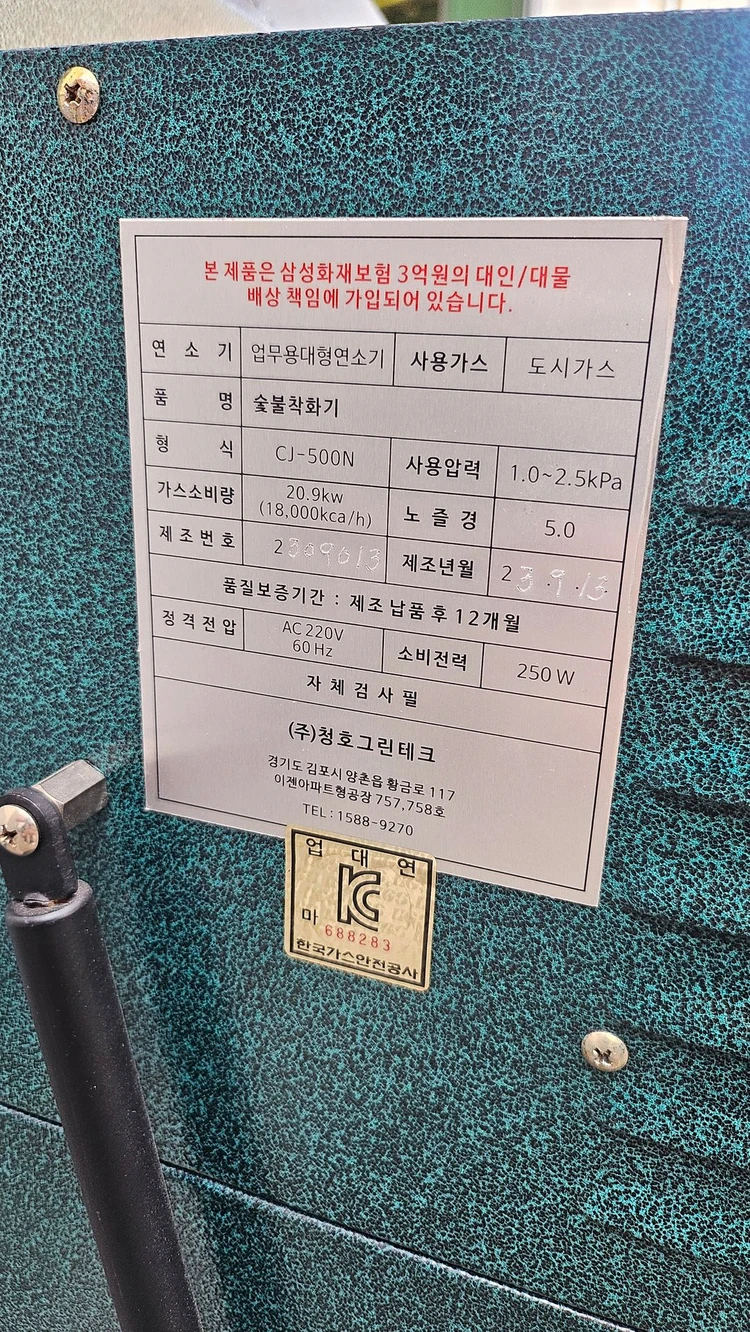 본 제품은 삼성화재보험 3억원의 대인/대물
배상 책임에 가입되어 있습니다.
연 소 기 업무용대형연소기 사용가스 도시가스
품 명 숯불착화기
형 식 CJ-500N 사용압력 1.0~2.5kPa
가스소비량 20.9kw (18,000kca/h) 노 즐 경 5.0
제 조 번 호 2309613 제조년월 23.9.13
품질보증기간 : 제조 납품 후 12개월
정 격 전 압 AC 220V 60 Hz 소비전력 250 W
자 체 검 사 필
(주)청호그린테크
경기도 김포시 양촌읍 황금로 117
이젠아파트형공장 757,758호
TEL : 1588-9270
업 대 연
KC
마 688283
한국가스안전공사